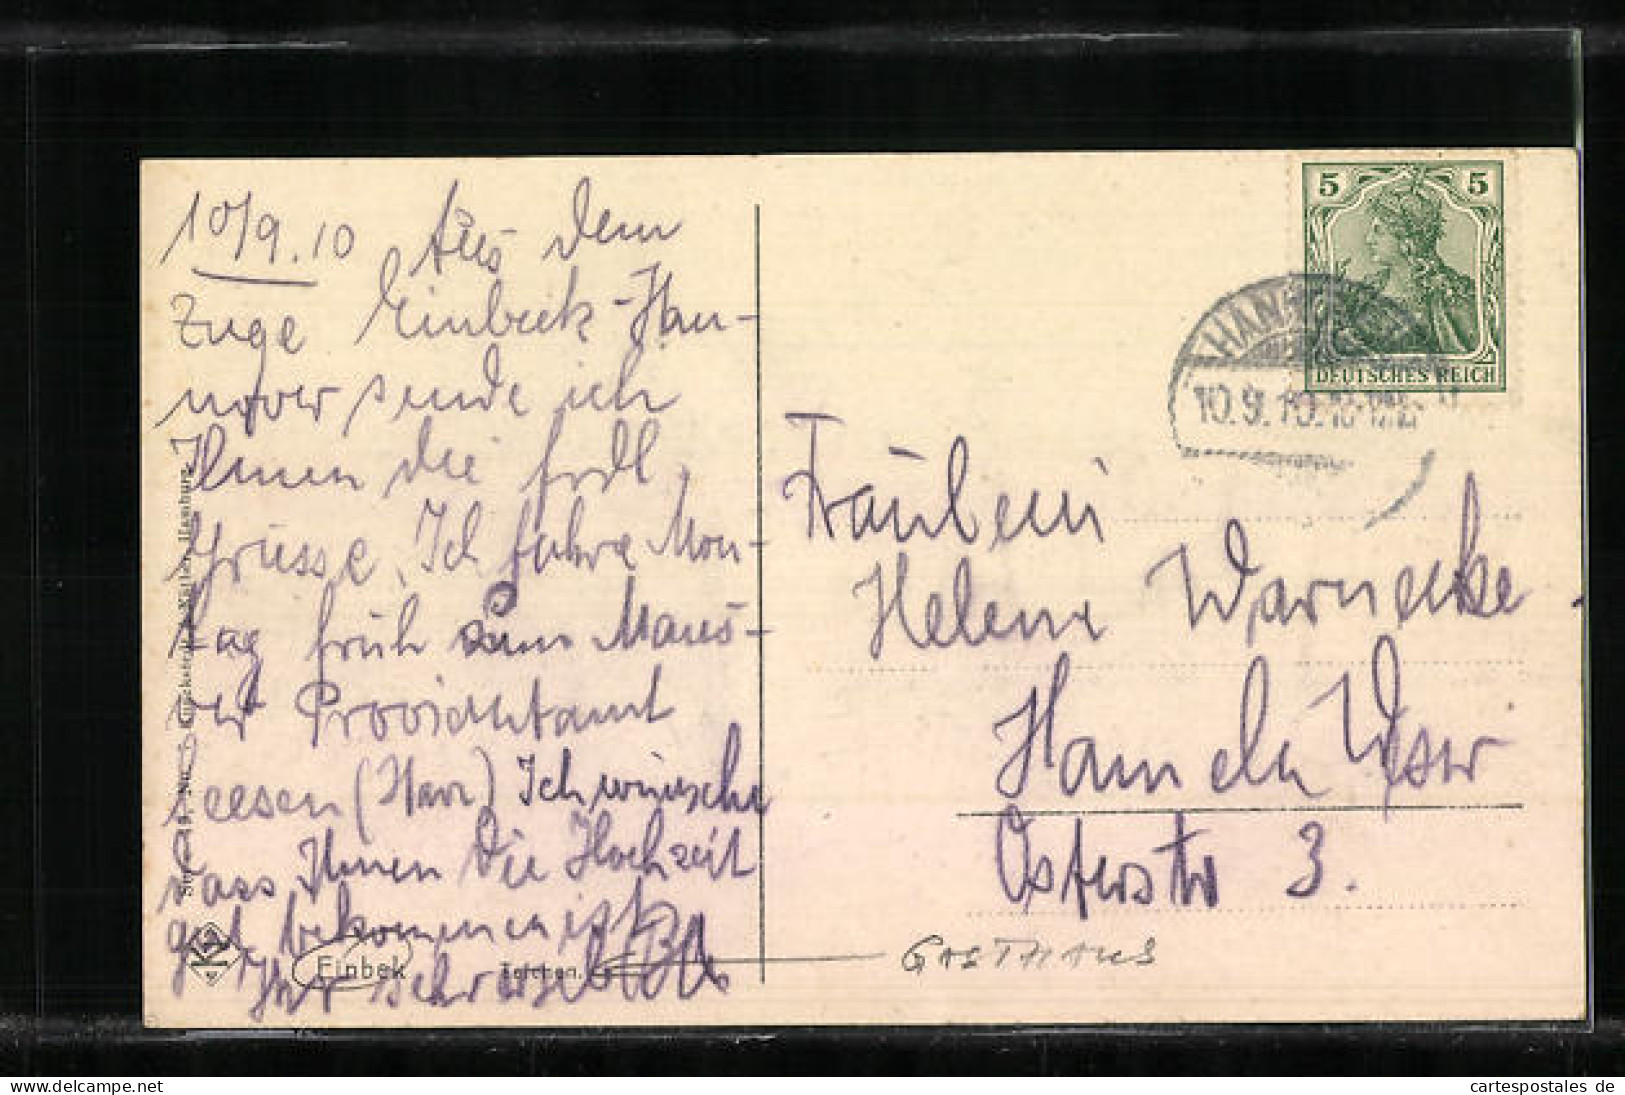 10/9.10 Aus dem
Zuge Einbeck-Han-
nover sende ich
Ihnen die frdl.
Grüsse. Ich fahre Mon-
tag früh zum Manö-
ver Proviantamt
Seesen (Harz) Ich wünsche
dass Ihnen die Hochzeit
gut bekommen ist
Ihr
Einbek
5 5
DEUTSCHES REICH
HANNOVER
10.9.10.
Fräulein
Helene Warnecke
Hameln Weser
Osterstr 3.
GASTHAUS
cartespostales de